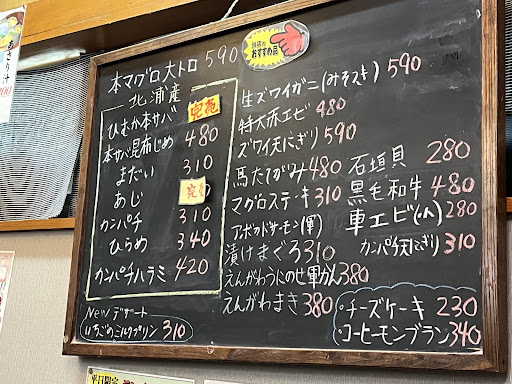 あさり汁
本マグロ大トロ 590
当店のおすすめ品
北浦産
ひむか本サバ 完売
本サバ昆布じめ 480
まだい 310
あじ 完
カンパチ 310
ひらめ 340
カンパチハラミ 420
New デザート
いちごのミルクプリン 310
生ズワイガニ(みそ付) 590
特大赤エビ 480
ズワイ天にぎり 590
馬たてがみ 480
マグロステーキ 310
アボカドサーモン(軍)
漬けまぐろ 310
えんがわうにのせ軍かん 380
えんがわまき 380
石垣貝 280
黒毛和牛 480
車エビ(小) 280
カンパチ天にぎり 310
・チーズケーキ 230
・コーヒーモンブラン 340
平日限定